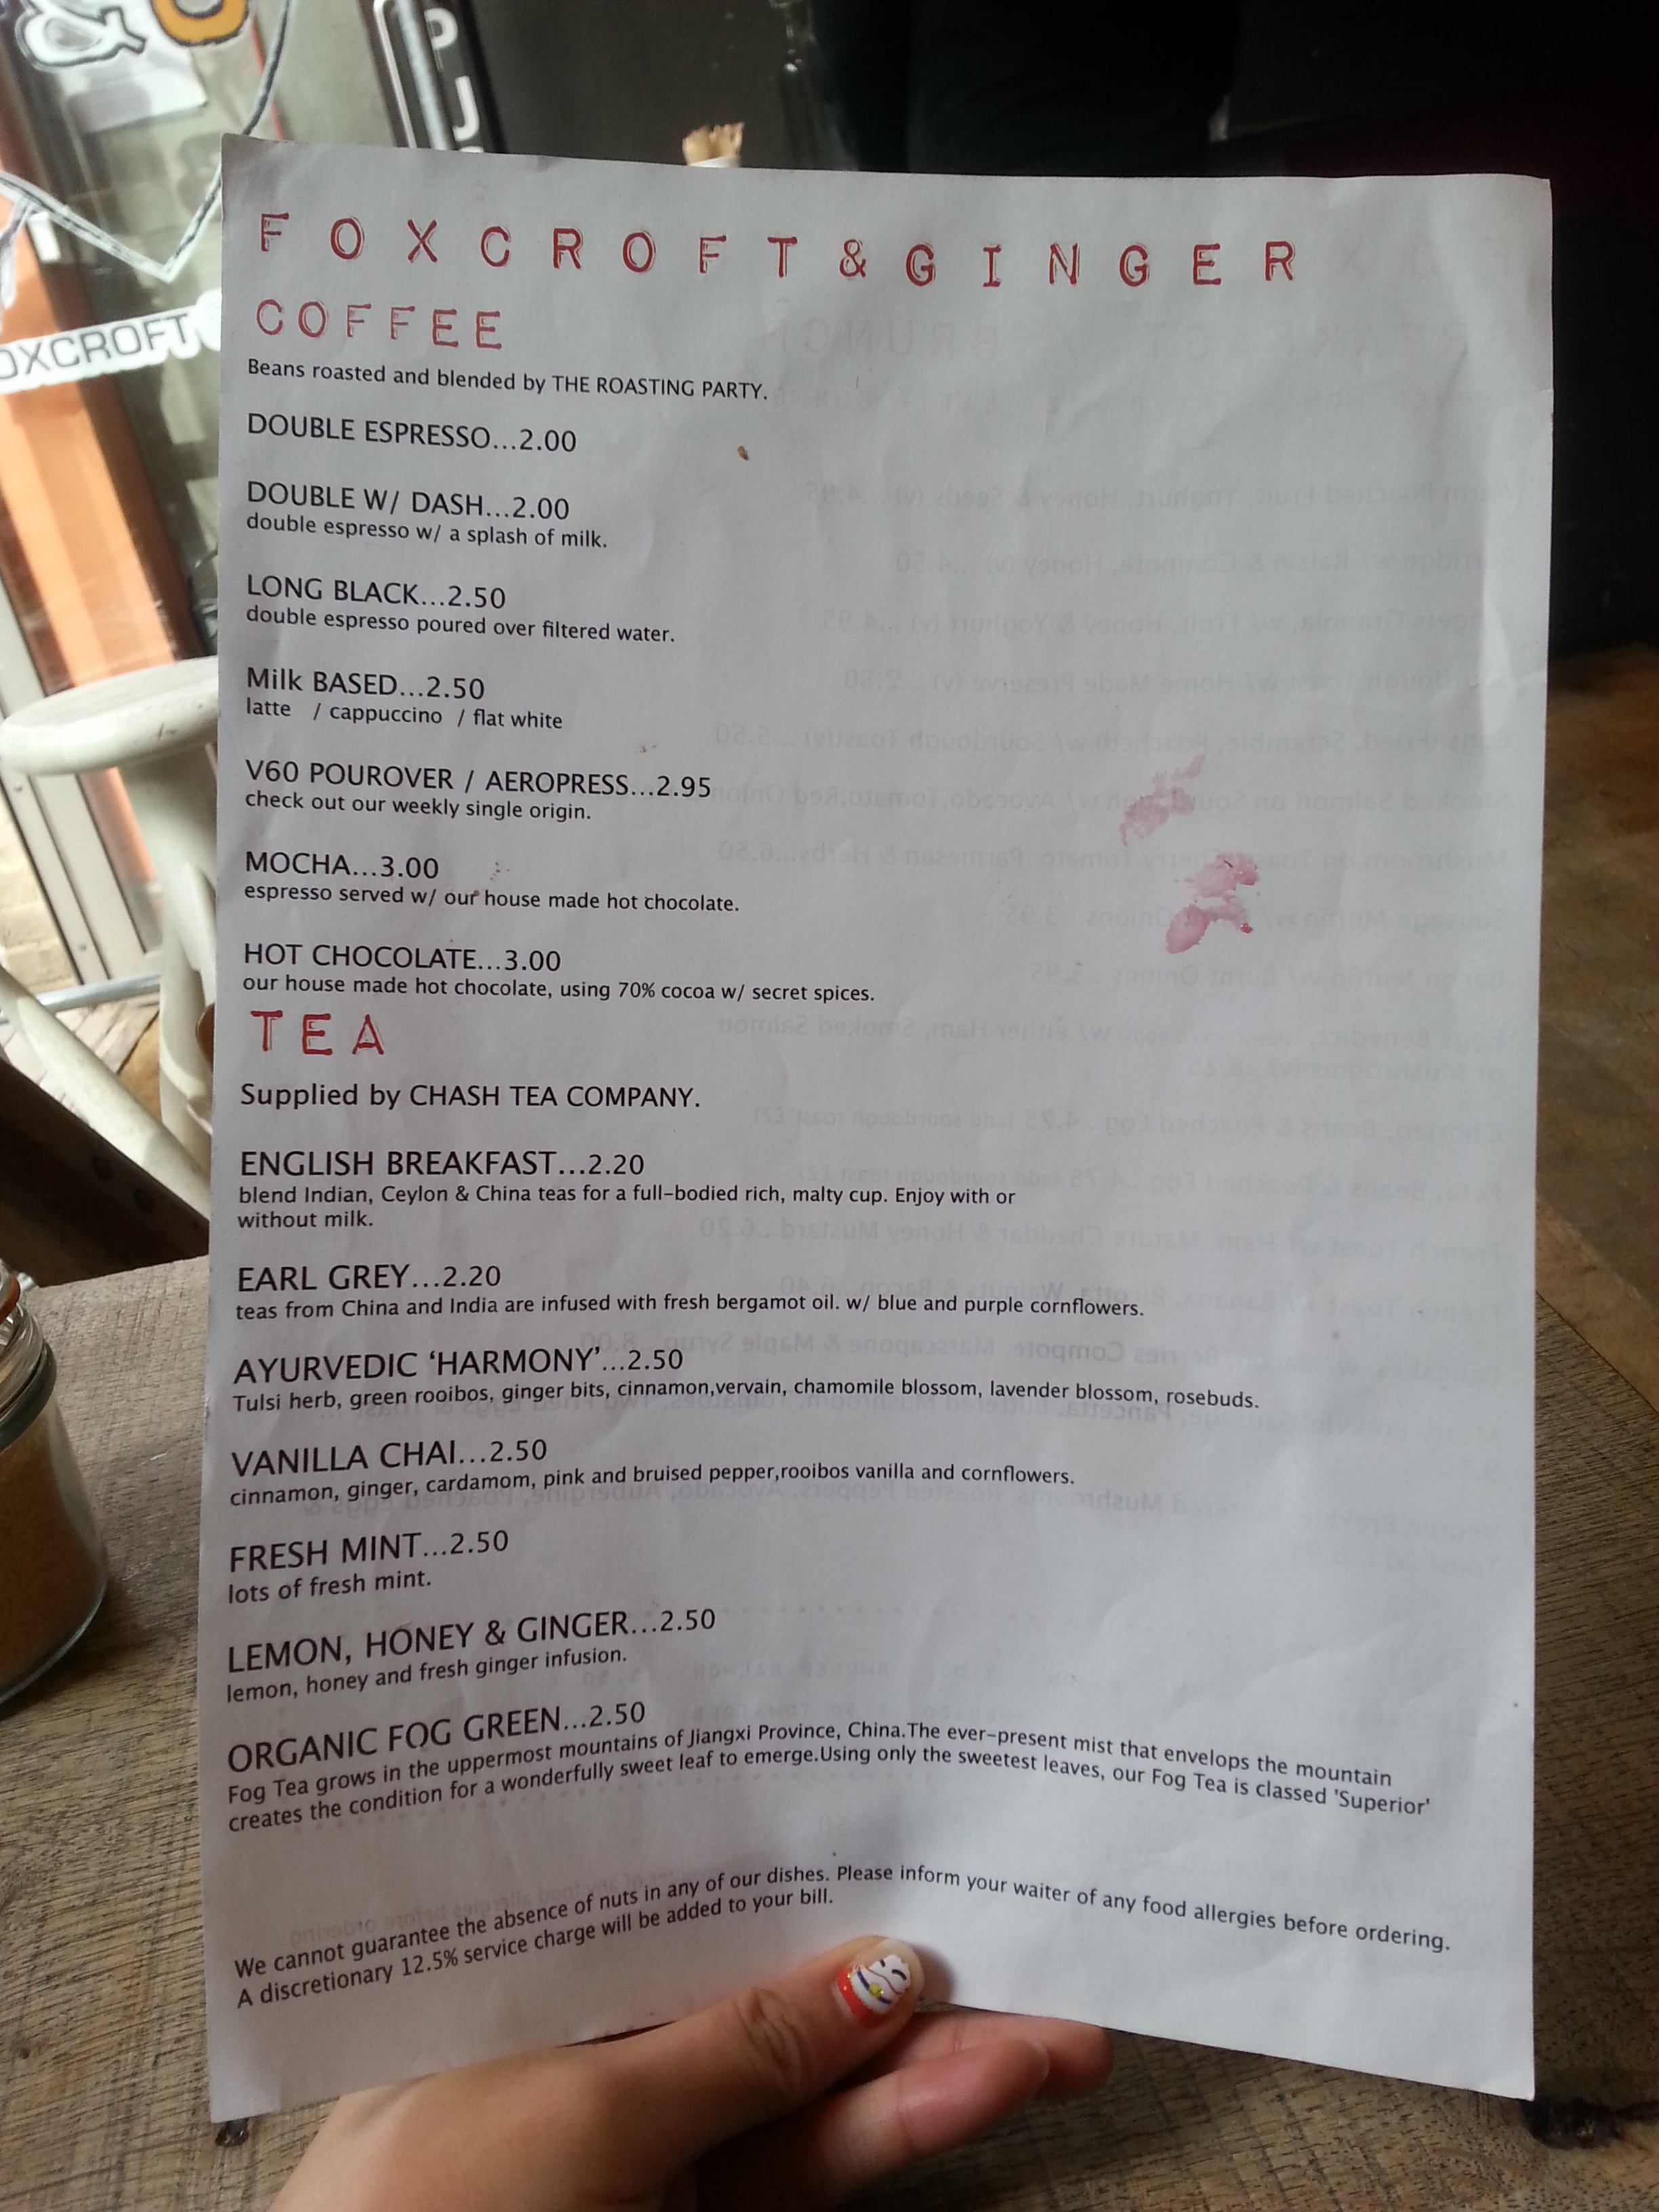 FOXCROFT&GINGER
COFFEE
Beans roasted and blended by THE ROASTING PARTY.
DOUBLE ESPRESSO...2.00
DOUBLE W/ DASH...2.00
double espresso w/ a splash of milk.
LONG BLACK...2.50
double espresso poured over filtered water.
Milk BASED...2.50
latte / cappuccino / flat white
V60 POUROVER / AEROPRESS...2.95
check out our weekly single origin.
MOCHA...3.00
espresso served w/ our house made hot chocolate.
HOT CHOCOLATE...3.00
our house made hot chocolate, using 70% cocoa w/ secret spices.
TEA
Supplied by CHASH TEA COMPANY.
ENGLISH BREAKFAST...2.20
blend Indian, Ceylon & China teas for a full-bodied rich, malty cup. Enjoy with or
without milk.
EARL GREY...2.20
teas from China and India are infused with fresh bergamot oil. w/ blue and purple cornflowers.
AYURVEDIC ‘HARMONY’...2.50
Tulsi herb, green rooibos, ginger bits, cinnamon,vervain, chamomile blossom, lavender blossom, rosebuds.
VANILLA CHAI...2.50
cinnamon, ginger, cardamom, pink and bruised pepper,rooibos vanilla and cornflowers.
FRESH MINT...2.50
lots of fresh mint.
LEMON, HONEY & GINGER...2.50
lemon, honey and fresh ginger infusion.
ORGANIC FOG GREEN...2.50
Fog Tea grows in the uppermost mountains of Jiangxi Province, China.The ever-present mist that envelops the mountain
creates the condition for a wonderfully sweet leaf to emerge.Using only the sweetest leaves, our Fog Tea is classed 'Superior'
We cannot guarantee the absence of nuts in any of our dishes. Please inform your waiter of any food allergies before ordering.
A discretionary 12.5% service charge will be added to your bill.
OXCROFT